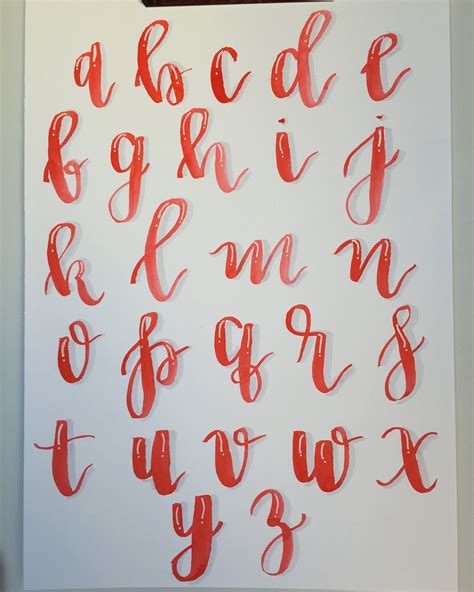 a b c d e
f g h i j
k l m n
o p q r s
t u v w x
y z